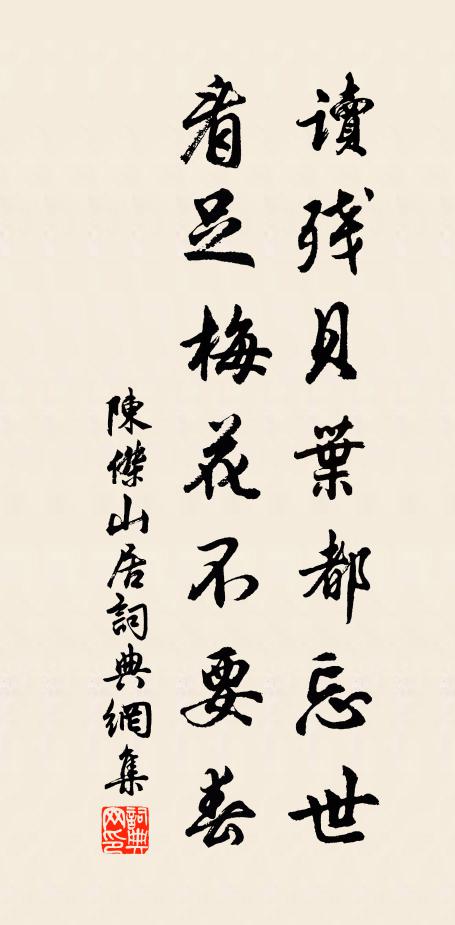 讀殘貝葉都忘世
看足梅花不要春
陳傑山居詞典網集
詞典網印